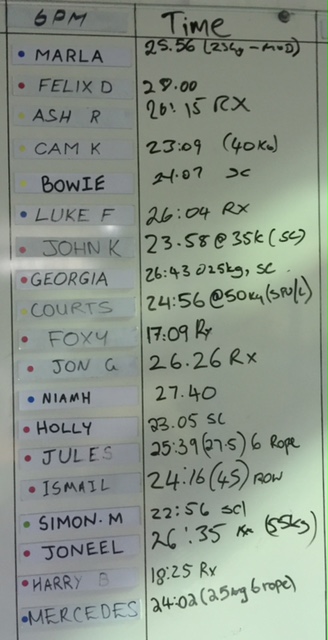 6PM Time
MARLA 25.56 (25kg-MOD)
FELIX D 28.00
ASH R 26:15 RX
CAM K 23:09 (40KG)
BOWIE 24.07 SC
LUKE F 26:04 RX
JOHN K 23.58@35K(SC)
GEORGIA 26:43 @25kg, SC.
COURTS 24:56@50Kg(SPU/L)
FOXY 17:09 Rx
JON G 26.26 RX
NIAMH 27.40
HOLLY 23.05 SC
JULES 25:39(27.5) 6 Rope
ISMAIL 24:16(45) ROW
SIMON.M 22:56 scl
JONEEL 26:35 (55kg)
HARRY B 18:25 Rx
MERCEDES 24:02(25kg 6rope)